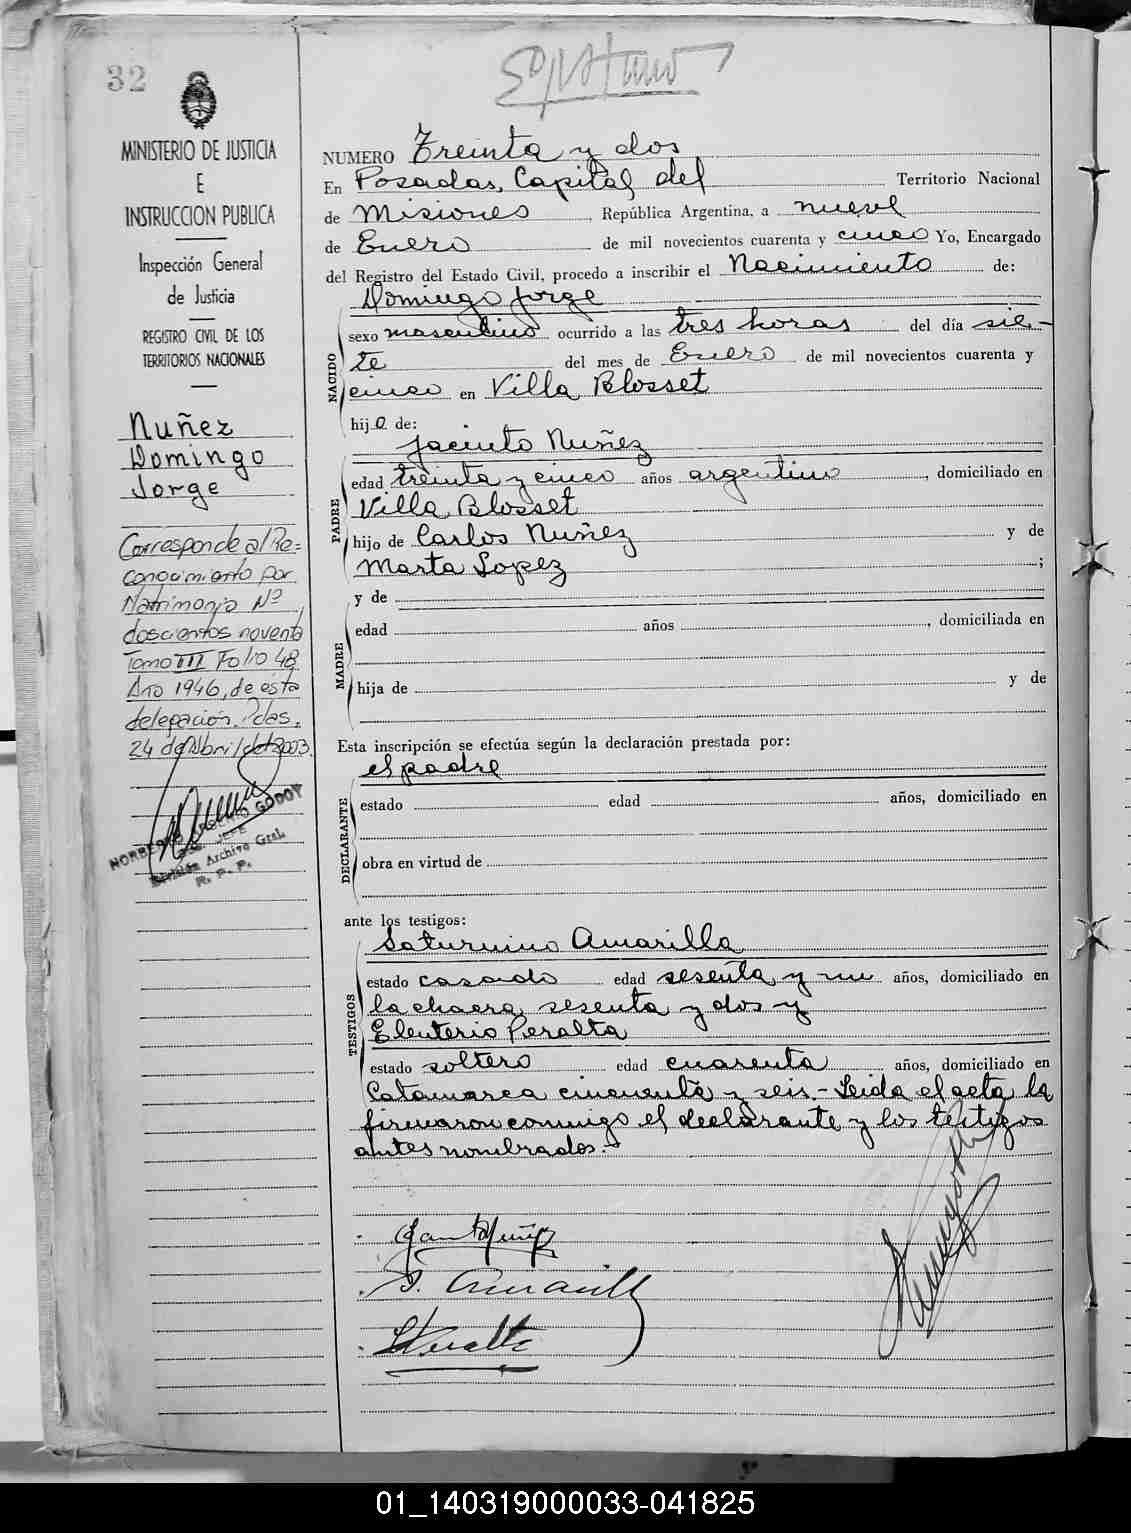 32
MINISTERIO DE JUSTICIA
E
INSTRUCCION PUBLICA
Inspección General
de Justicia
REGISTRO CIVIL DE LOS
TERRITORIOS NACIONALES
Nuñez
Domingo
Jorge
Corresponde al Re=
conocimiento por
Matrimonio Nº
doscientos noventa
Tomo III Folio 48
Año 1946, de esta
delegación. Pdas.
24 de Abril del 2003.
NORBERTO ARGENIO GODOY
JEFE
División Archivo Gral.
R. P. P.
NUMERO Treinta y dos
En Posadas, Capital del Territorio Nacional
de Misiones, República Argentina, a nueve
de Enero de mil novecientos cuarenta y cinco Yo, Encargado
del Registro del Estado Civil, procedo a inscribir el Nacimiento de:
Domingo Jorge
NACIDO
sexo masculino ocurrido a las tres horas del día sie-
te del mes de Enero de mil novecientos cuarenta y
cinco en Villa Blosset
hijo de:
Jacinto Nuñez
PADRE
edad treinta y cinco años argentino, domiciliado en
Villa Blosset
hijo de Carlos Nuñez y de
Marta Lopez ;
y de
MADRE
edad años , domiciliada en
hija de y de
Esta inscripción se efectúa según la declaración prestada por:
el padre
DECLARANTE
estado edad años, domiciliado en
obra en virtud de
ante los testigos:
Saturnino Amarilla
TESTIGOS
estado casado edad sesenta y un años, domiciliado en
la chacra sesenta y dos y
Eleuterio Peralta
estado soltero edad cuarenta años, domiciliado en
Catamarca cincuenta y seis.- Leida el acta la
firmaron conmigo el declarante y los testigos
antes nombrados.-
S. Amarilla
01_140319000033-041825